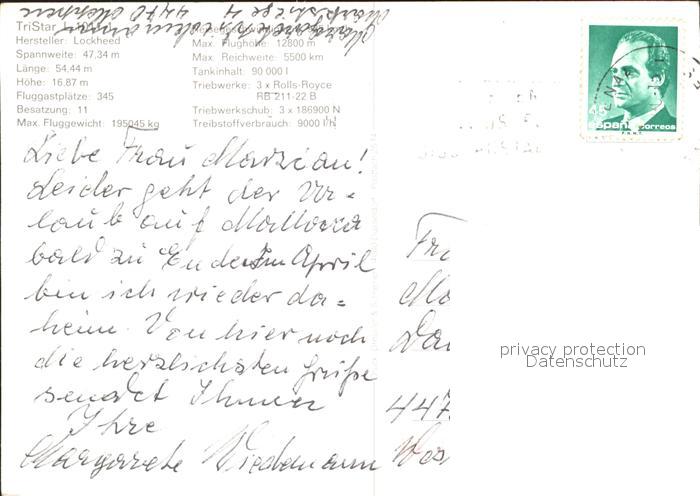 TriStar
Hersteller: Lockheed
Spannweite: 47,34 m
Länge: 54,44 m
Höhe: 16,87 m
Fluggastplätze: 345
Besatzung: 11
Max. Fluggewicht: 195045 kg
Max. Flughöhe: 12800 m
Max. Reichweite: 5500 km
Tankinhalt: 90 000 l
Triebwerke: 3 x Rolls-Royce
RB 211-22 B
Triebwerkschub: 3 x 186900 N
Treibstoffverbrauch: 9000 l/h
Liebe Frau Marzian!
Leider geht der Ur=
laub auf Mallorca
bald zu Ende. Im April
bin ich wieder da=
heim. Von hier noch
die herzlichsten Grüße
sendet Ihnen
Ihre
Margarete Wiedemann
España correos
447
privacy protection
Datenschutz